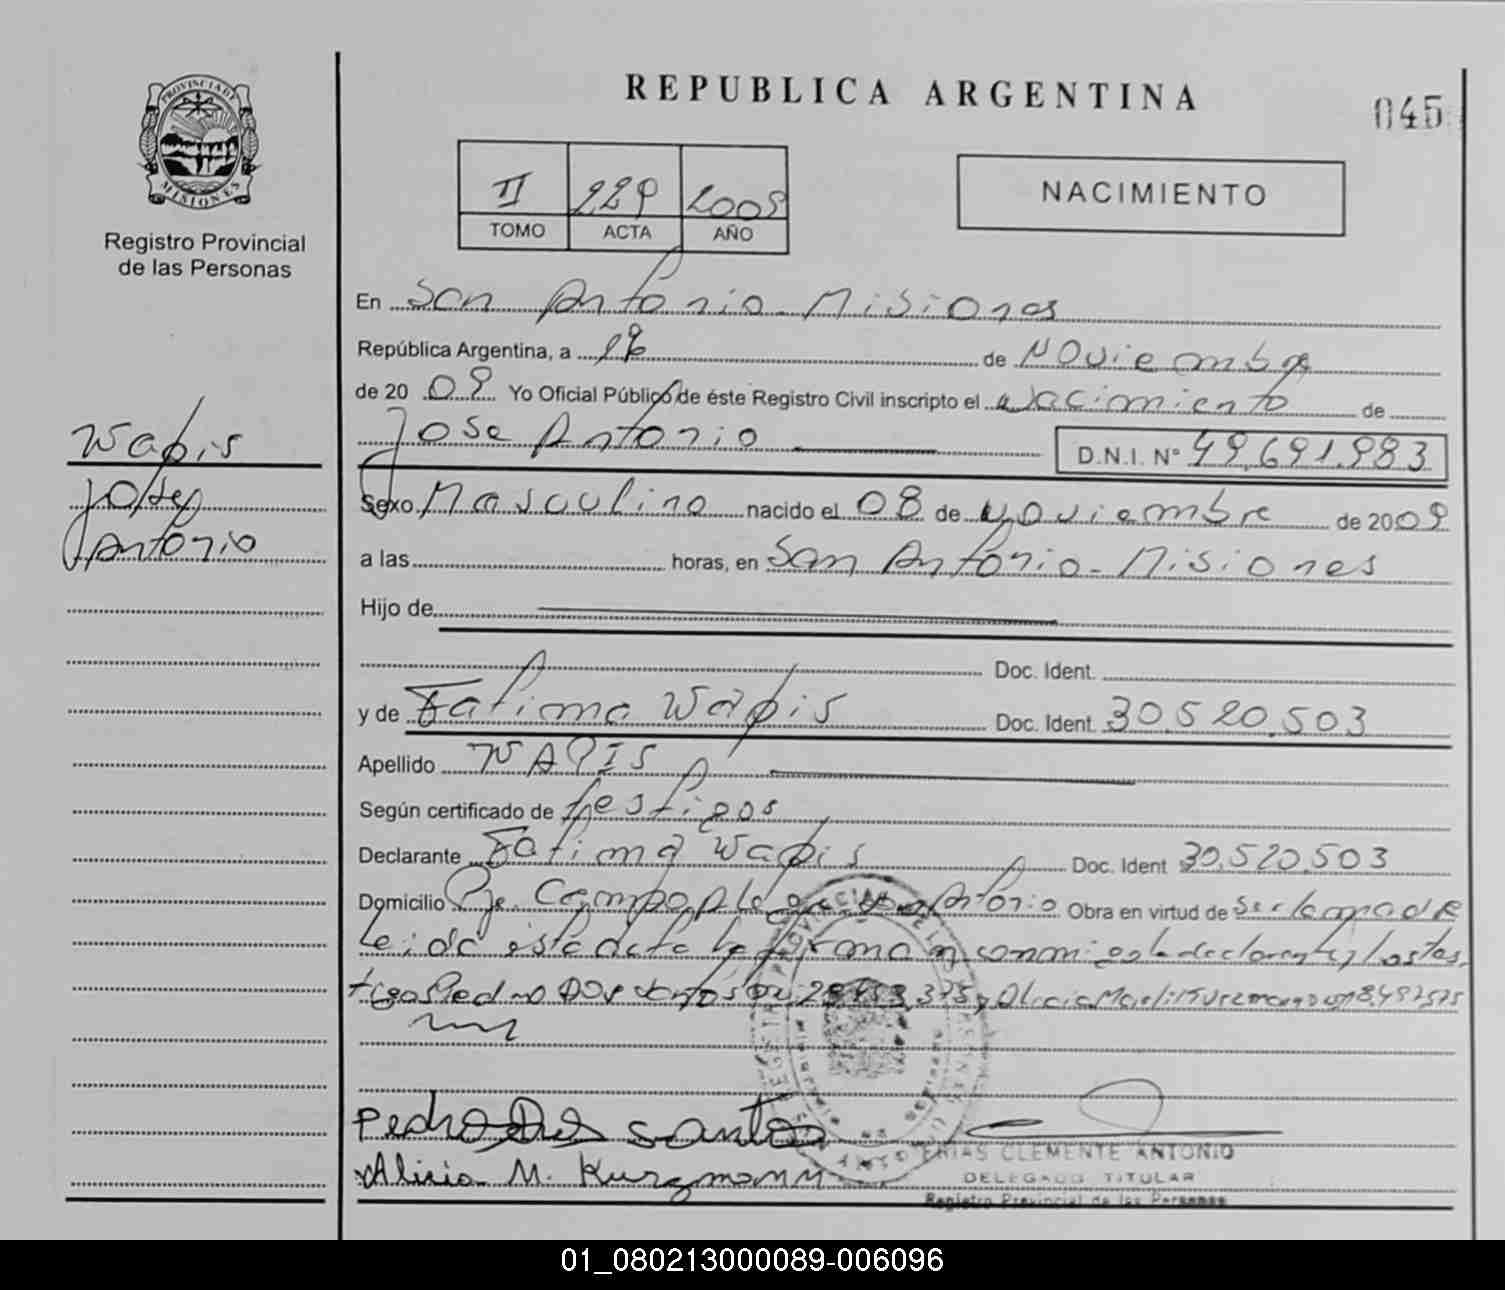 PROVINCIA DE
MISIONES
Registro Provincial
de las Personas
REPUBLICA ARGENTINA
045
II 229 2009
TOMO ACTA AÑO
NACIMIENTO
En San Antonio - Misiones
República Argentina, a de Noviembre
de 20 09 Yo Oficial Público de éste Registro Civil inscripto el Nacimiento de
Jose Antonio D.N.I. N° 49.691.983
Wapis
Jose
Antonio
Sexo Masculino nacido el 08 de Noviembre de 2009
a las horas, en San Antonio - Misiones
Hijo de
Doc. Ident.
y de Fatima Wapis Doc. Ident. 30.520.503
Apellido WAPIS
Según certificado de testigos
Declarante Fatima Wapis Doc. Ident 30.520.503
Domicilio Antonio Obra en virtud de Ser la madre
Leida esta acta la firman conmigo la declarante y los tes
tigos Pedro Dos Santos
Pedro Dos Santos
Alicia M. Kurzmann
CLEMENTE ANTONIO
DELEGADO TITULAR
Registro Provincial de las Personas
01_080213000089-006096